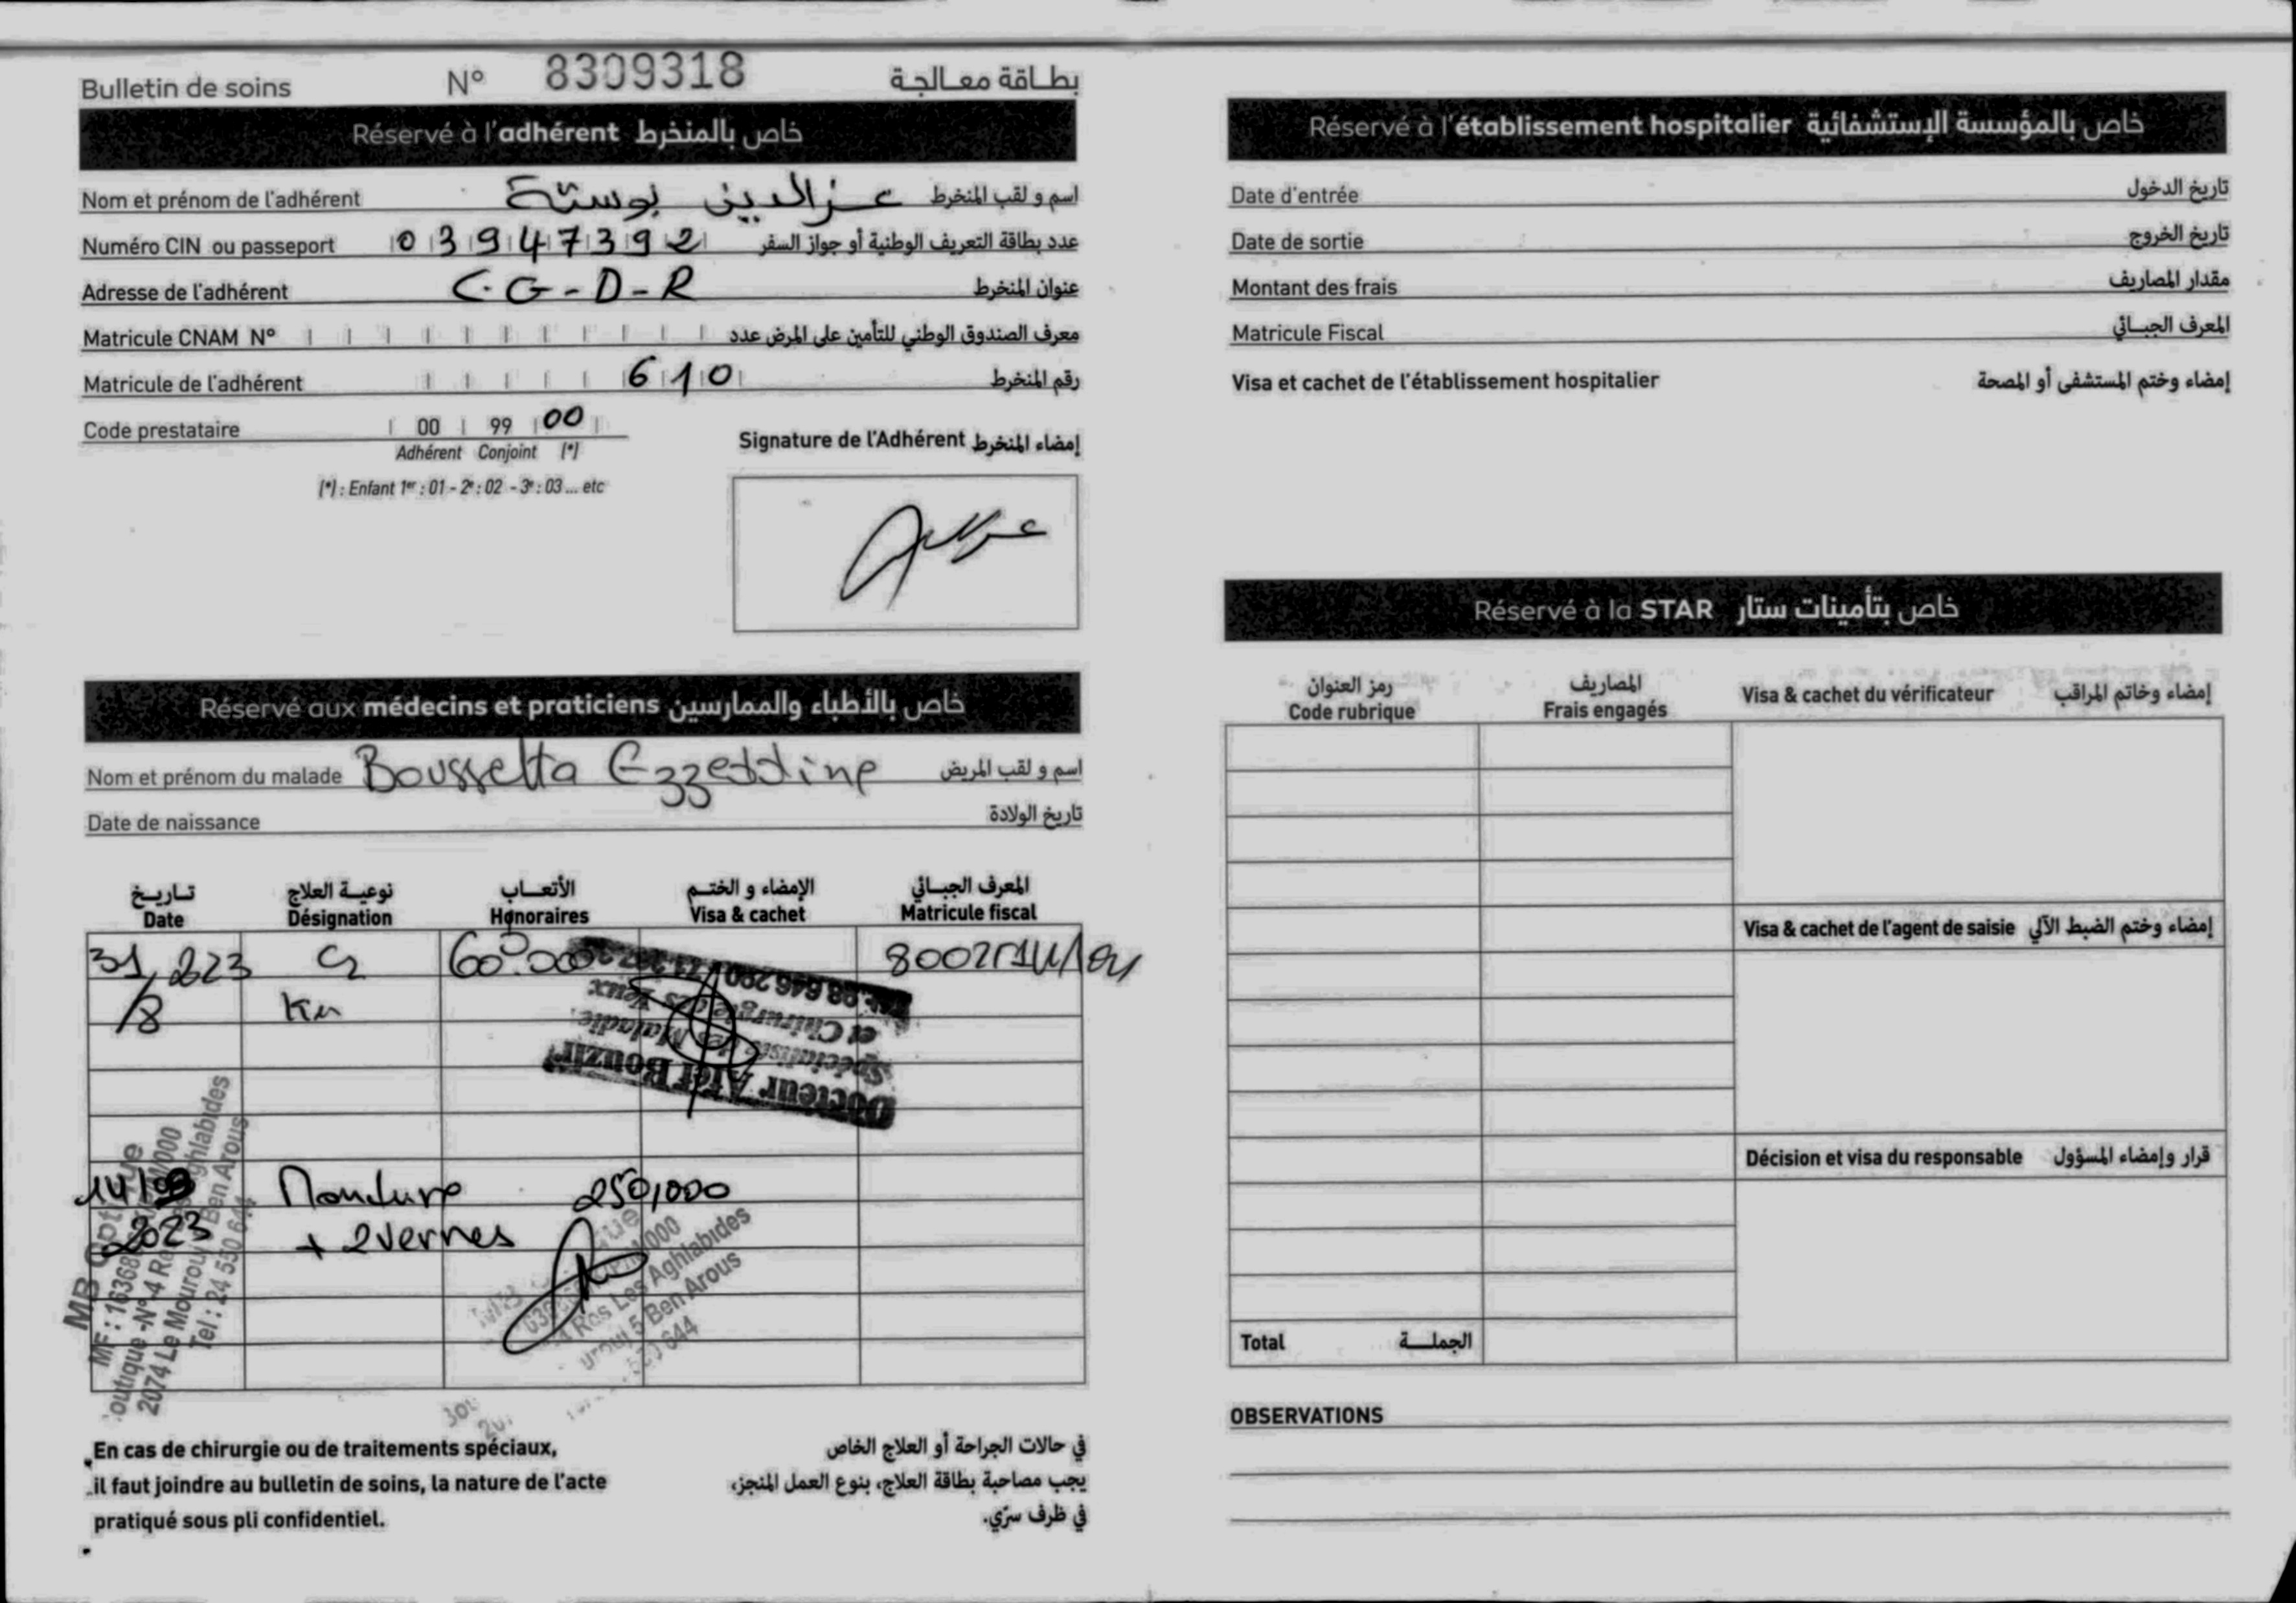 Bulletin de soins N° 8309318 بطاقة معالجة
Réservé à l'adhérent خاص بالمنخرط
Nom et prénom de l'adhérent عزالدين بوستة اسم و لقب المنخرط
Numéro CIN ou passeport 03947392 عدد بطاقة التعريف الوطنية أو جواز السفر
Adresse de l'adhérent C.G-D-R عنوان المنخرط
Matricule CNAM N° معرف الصندوق الوطني للتأمين على المرض عدد
Matricule de l'adhérent 610 رقم المنخرط
Code prestataire 00 99 00
Adhérent Conjoint (*)
(*) : Enfant 1er : 01 - 2e : 02 - 3e : 03 ... etc
Signature de l'Adhérent إمضاء المنخرط
Réservé aux médecins et praticiens خاص بالأطباء والممارسين
Nom et prénom du malade Boussetta Ezzeddine اسم و لقب المريض
Date de naissance تاريخ الولادة
تاريخ نوعية العلاج الأتعاب الإمضاء و الختم المعرف الجبائي
Date Désignation Honoraires Visa & cachet Matricule fiscal
31/8 2023 C2 60.000
Docteur Bouzir
Spécialiste des Maladie
et Chirurgie des Yeux
14/09 Monture 250,000
2023 + 2 verres
MB Optique
Boutique -N° 4 Res Les Aghlabides
2074 Le Mourouj 5 Ben Arous
Tel : 24 550 644
En cas de chirurgie ou de traitements spéciaux,
il faut joindre au bulletin de soins, la nature de l'acte
pratiqué sous pli confidentiel.
في حالات الجراحة أو العلاج الخاص
يجب مصاحبة بطاقة العلاج، بنوع العمل المنجز،
في ظرف سرّي.
Réservé à l'établissement hospitalier خاص بالمؤسسة الإستشفائية
Date d'entrée تاريخ الدخول
Date de sortie تاريخ الخروج
Montant des frais مقدار المصاريف
Matricule Fiscal المعرف الجبائي
Visa et cachet de l'établissement hospitalier إمضاء وختم المستشفى أو المصحة
Réservé à la STAR خاص بتأمينات ستار
رمز العنوان المصاريف
Code rubrique Frais engagés Visa & cachet du vérificateur إمضاء وخاتم المراقب
Visa & cachet de l'agent de saisie إمضاء وختم الضبط الآلي
Décision et visa du responsable قرار وإمضاء المسؤول
Total الجملة
OBSERVATIONS